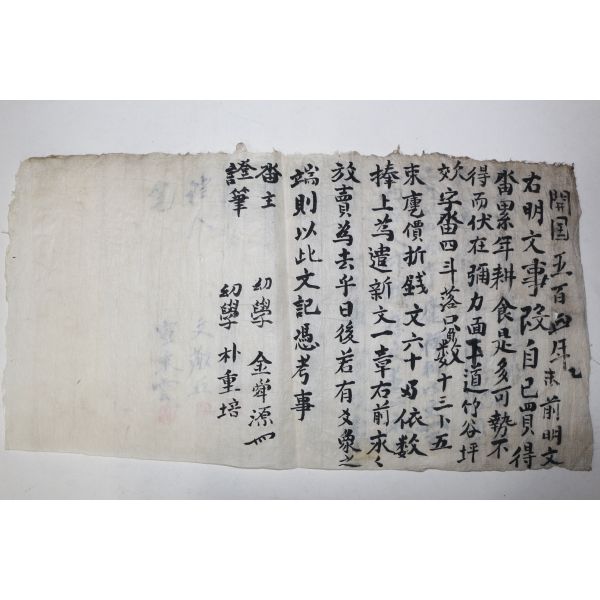 開国五百四年 未 前明文
右明文事段自己買得
畓累年耕食是多可勢不
得而伏在彌力面下道竹谷坪
効字畓四斗落只負數十三卜五
束庫價折錢文六十 依數
捧上為遣新文一章右前永〻
放賣為去乎日後若有爻象之
端則以此文記憑考事
畓主 幼學 金舜源
證筆 幼學 朴重培